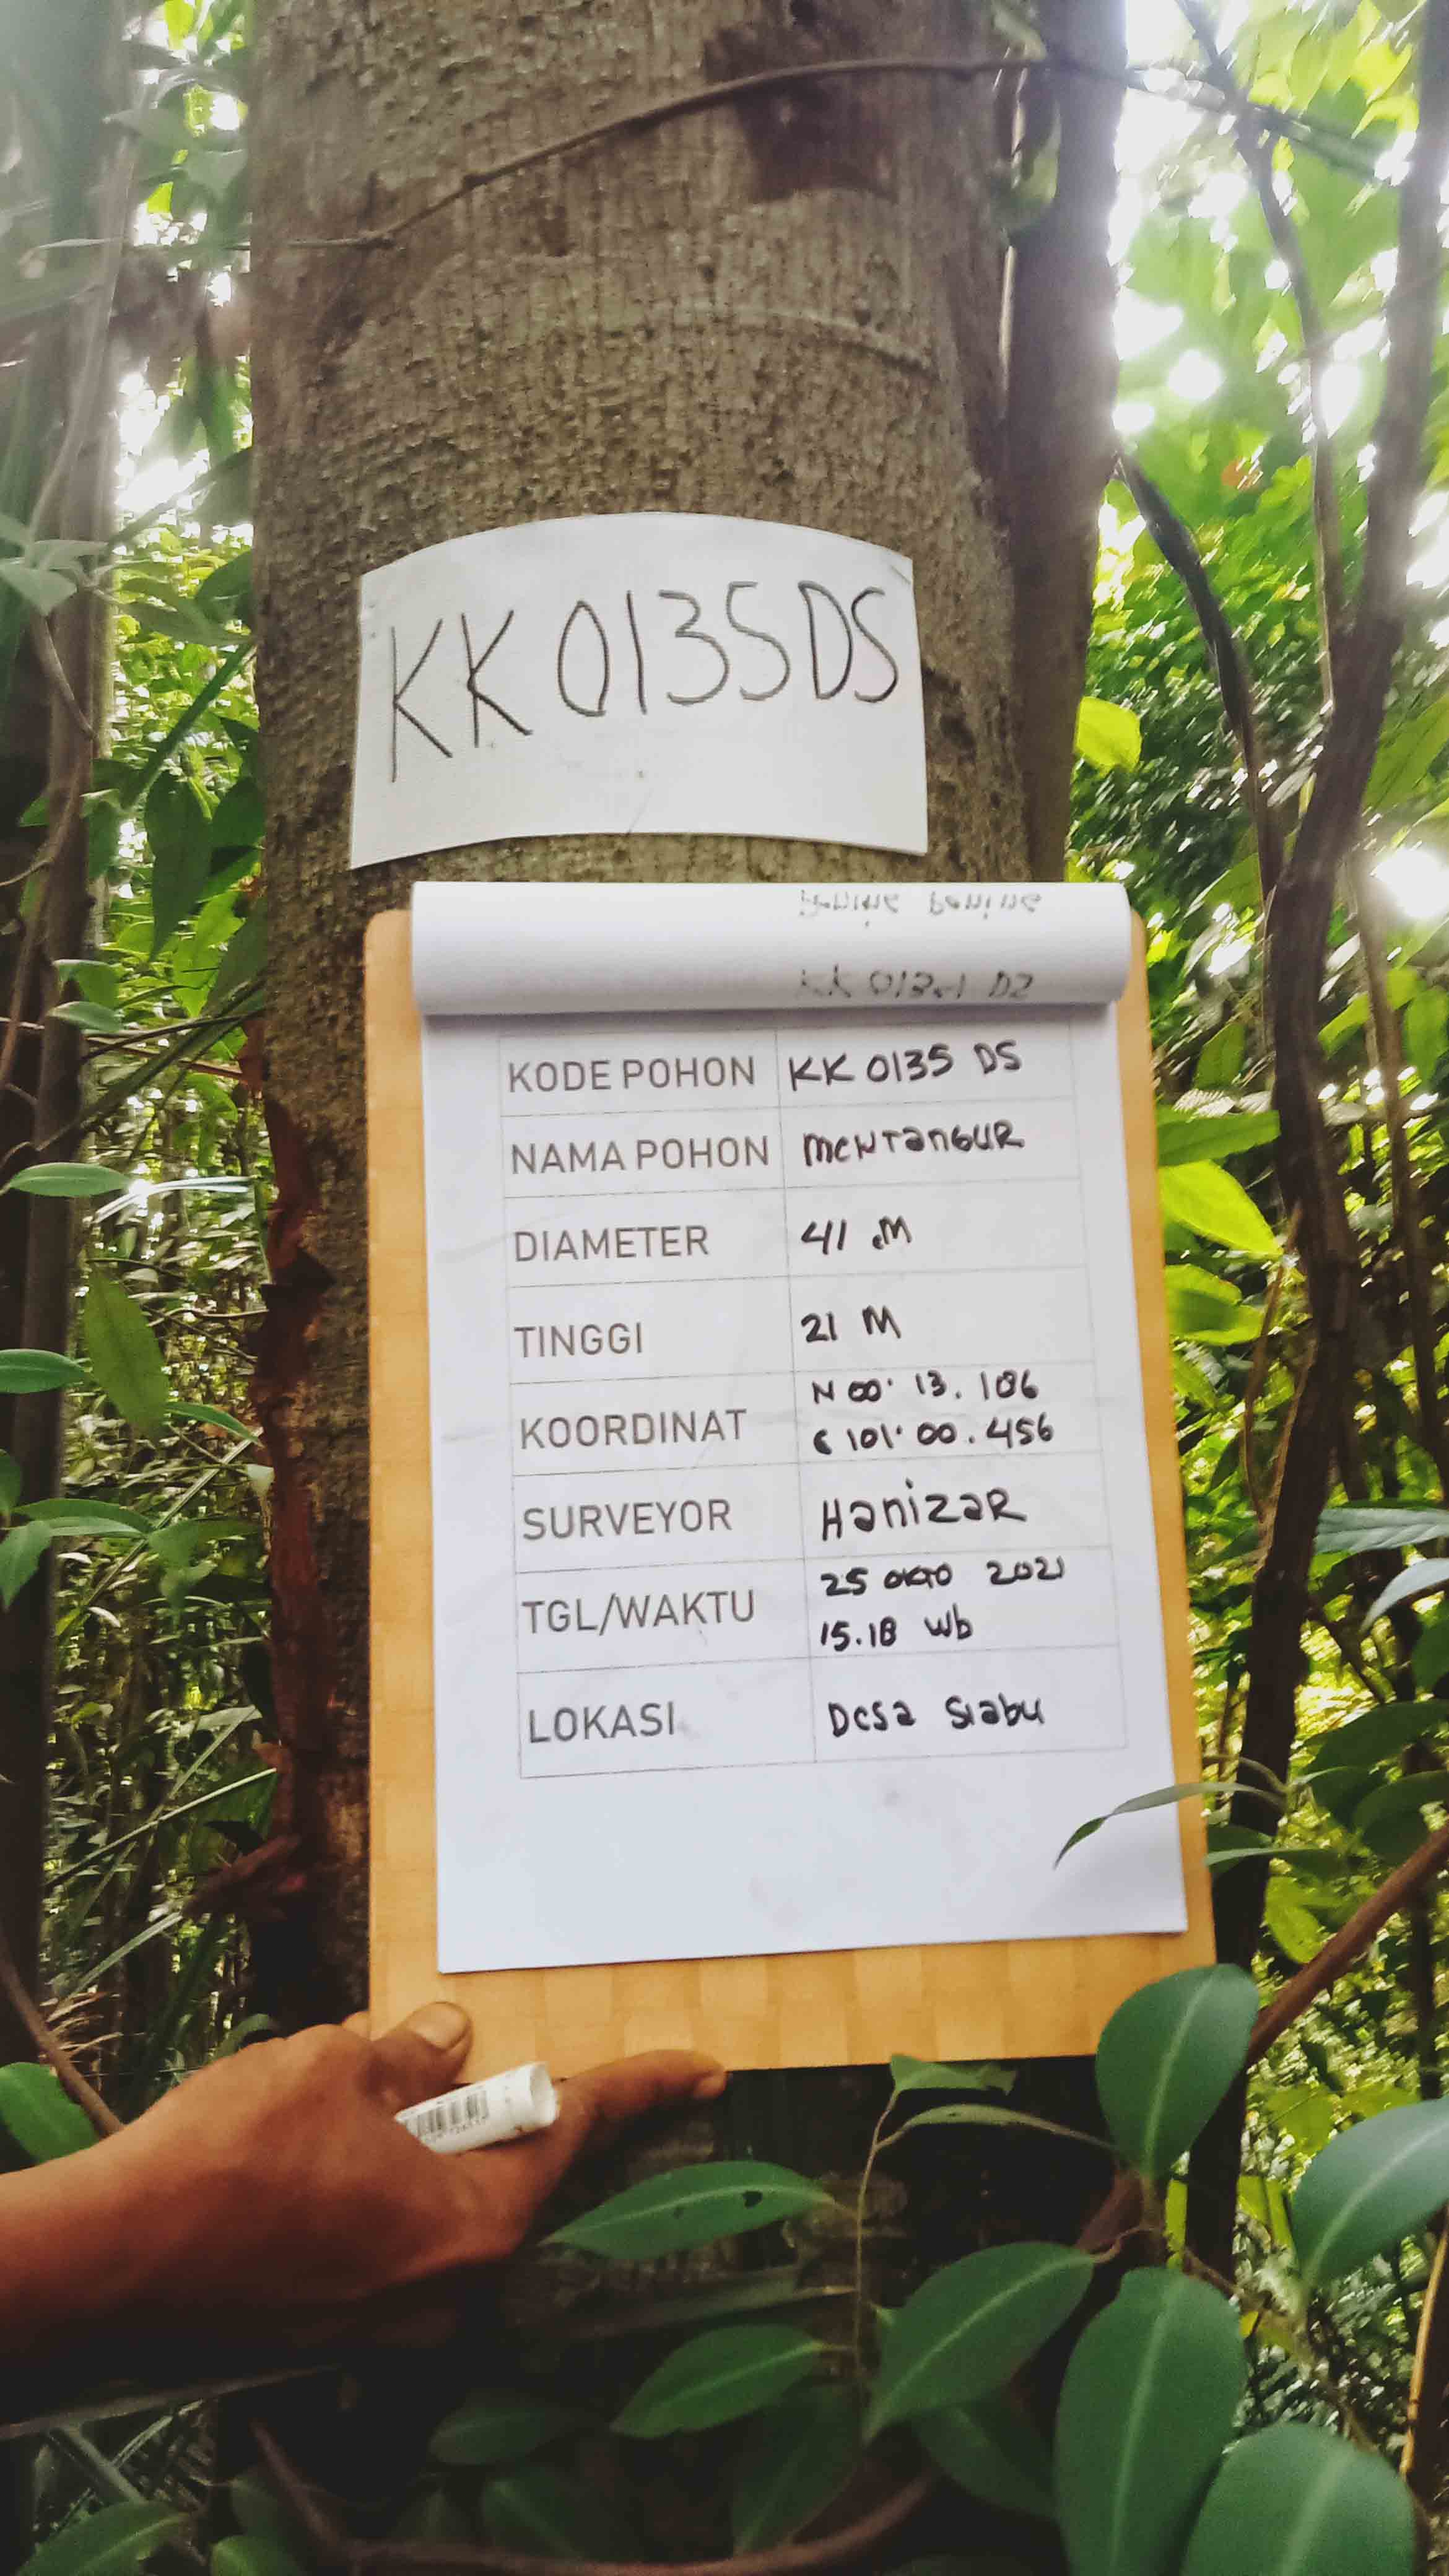 KK 0135 DS
KODE POHON KK 0135 DS
NAMA POHON MeNTanGUR
DIAMETER 41 cM
TINGGI 21 M
KOORDINAT N 00° 13. 186
E 101° 00. 456
SURVEYOR HanizaR
TGL/WAKTU 25 OKTO 2021
15.18 Wib
LOKASI Desa Siabu